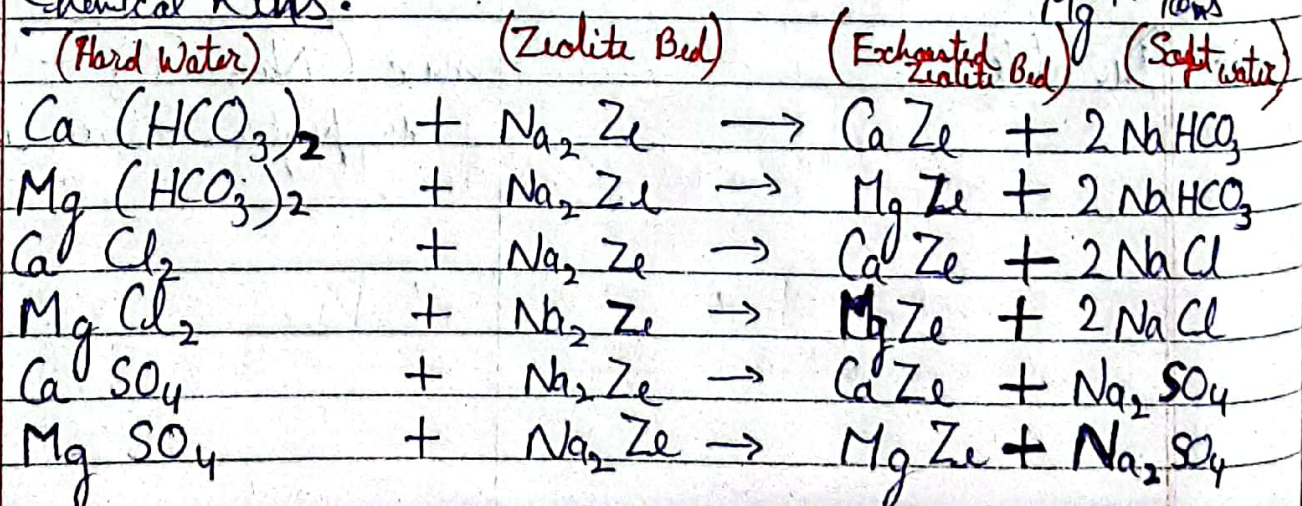 Chemical Rxns.
Mg ions
(Hard Water) (Zeolite Bed) (Exhausted Zeolite Bed) (Soft water)
Ca (HCO₃)₂ + Na₂ Ze → Ca Ze + 2 NaHCO₃
Mg (HCO₃)₂ + Na₂ Ze → Mg Ze + 2 NaHCO₃
Ca Cl₂ + Na₂ Ze → Ca Ze + 2 NaCl
Mg Cl₂ + Na₂ Ze → Mg Ze + 2 NaCl
Ca SO₄ + Na₂ Ze → Ca Ze + Na₂ SO₄
Mg SO₄ + Na₂ Ze → Mg Ze + Na₂ SO₄